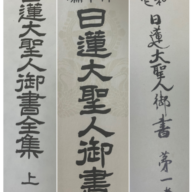 日蓮大聖人御書全集 上
日蓮大聖人御書
日蓮大聖人御書 第一